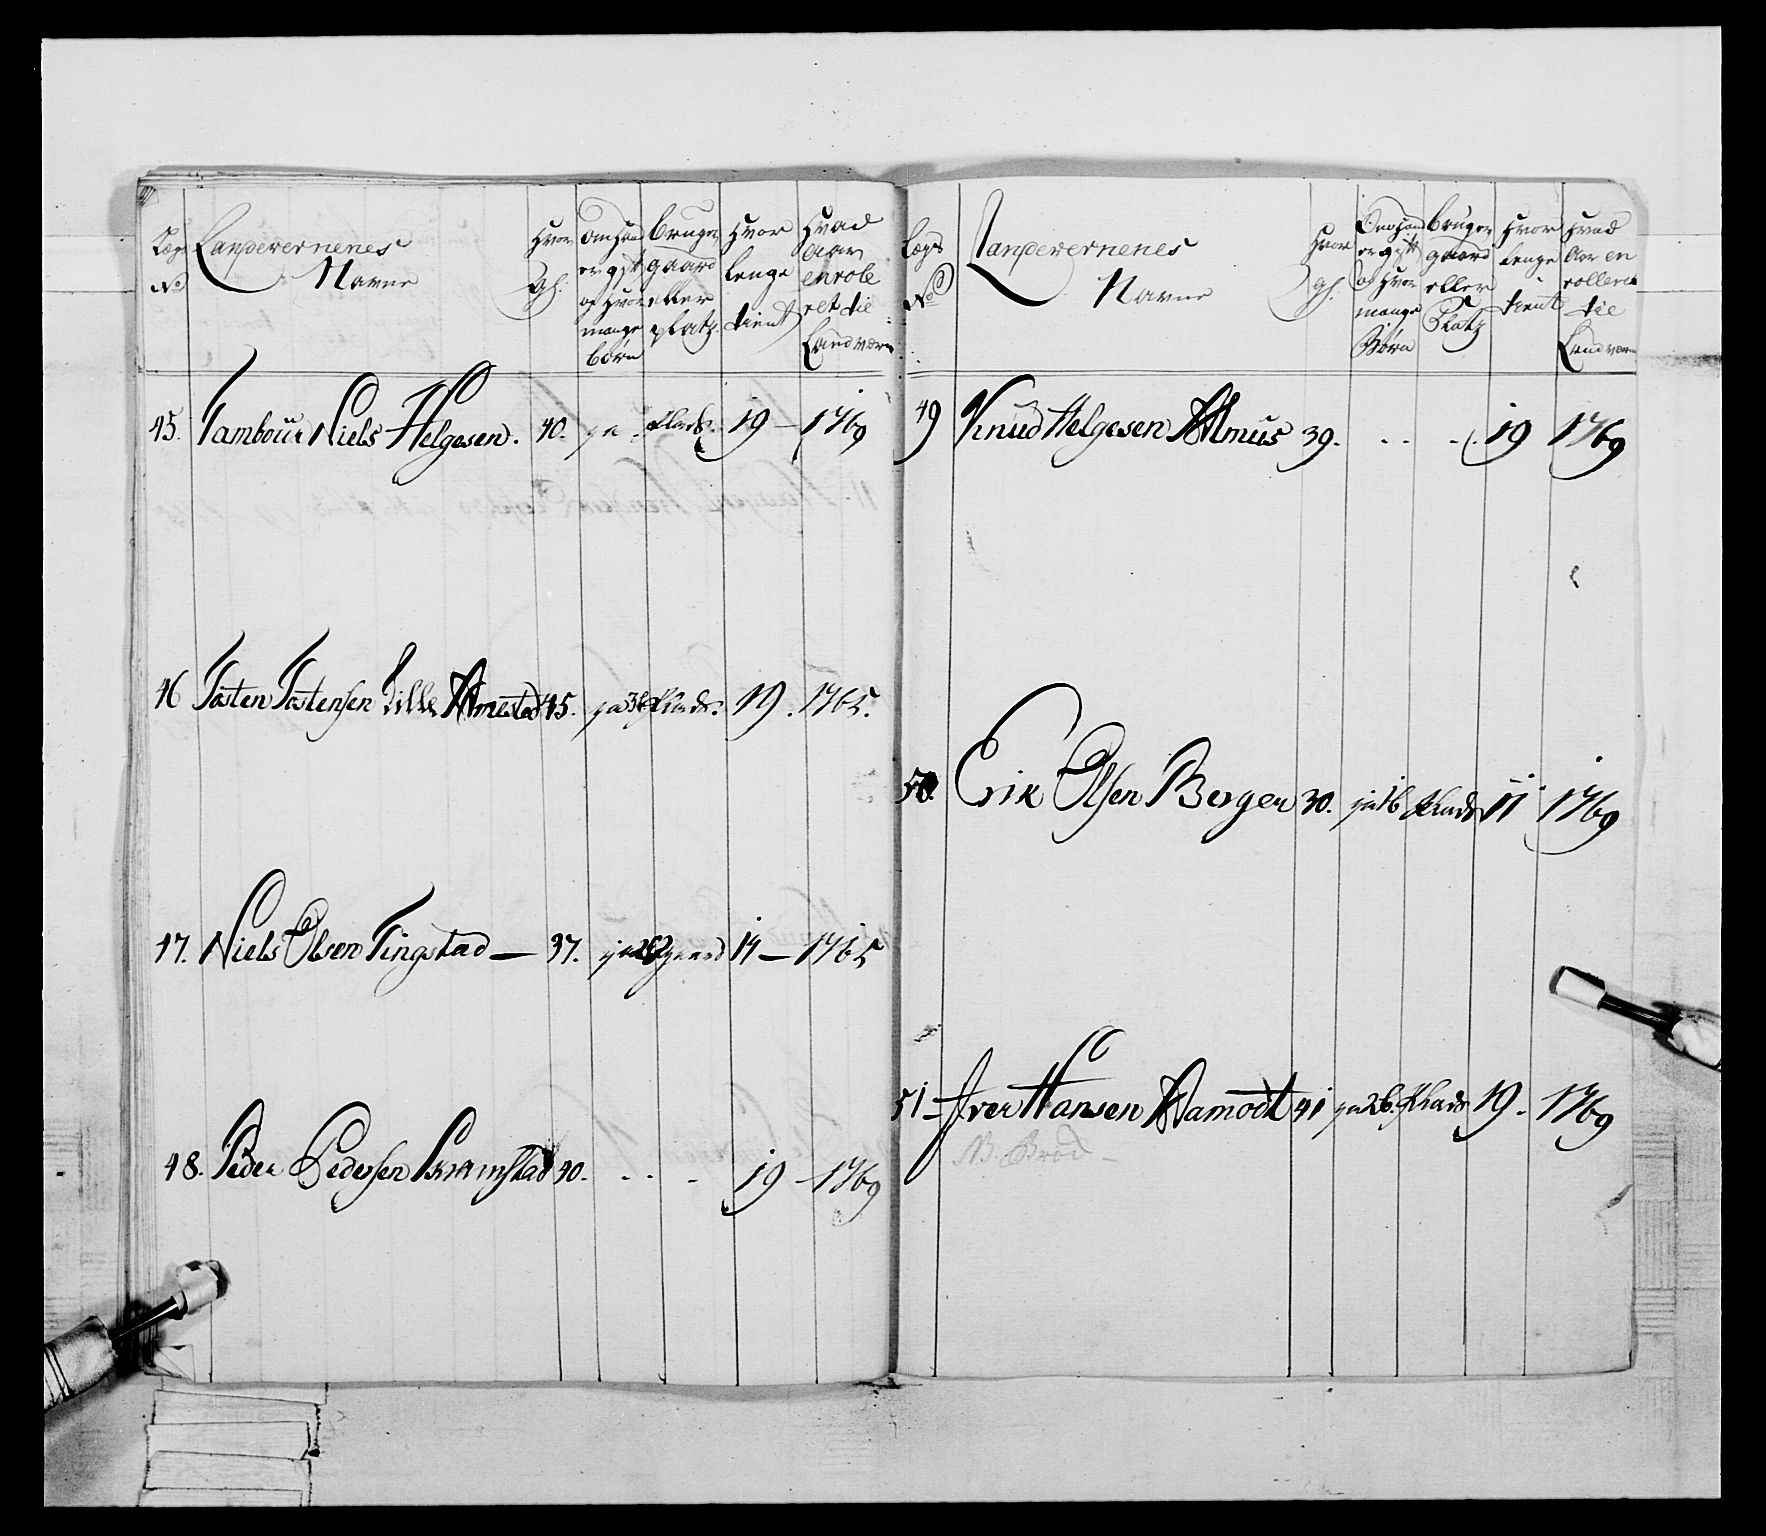 Lægs No
Landevernenes Navne
Hvor gl:
Om hand er gift og hvor mange børn
bruger gaard eller platz.
Hvor lenge tient
Hvad Aar enrolleret til Landværn
45. Tambour Niels Helgesen. 40. ja. 19 – 1769
46 Tosten Tostensen Lille 45. ja 3 Plads. 19. 1765.
47. Niels Olsen Tingstad — 37. ja gaard 14 – 1765
48. Peder Pedersen 40. . . - 19 – 1769
Lægs No
Landevernenes Navne
Hvor gl.
Om hand er gift og hvor mange Børn
bruger gaard eller Platz
Hvor lenge tient
Hvad Aar enrolleret til Landværn
49 Knud Helgesen Almus 39. . . - . 19 1769
50. Erik Olsen Bergen 30. ja 16 Plads 11 1769
51 – Iver Hansen Aamodt 41 ja 26. Plads 19. 1769